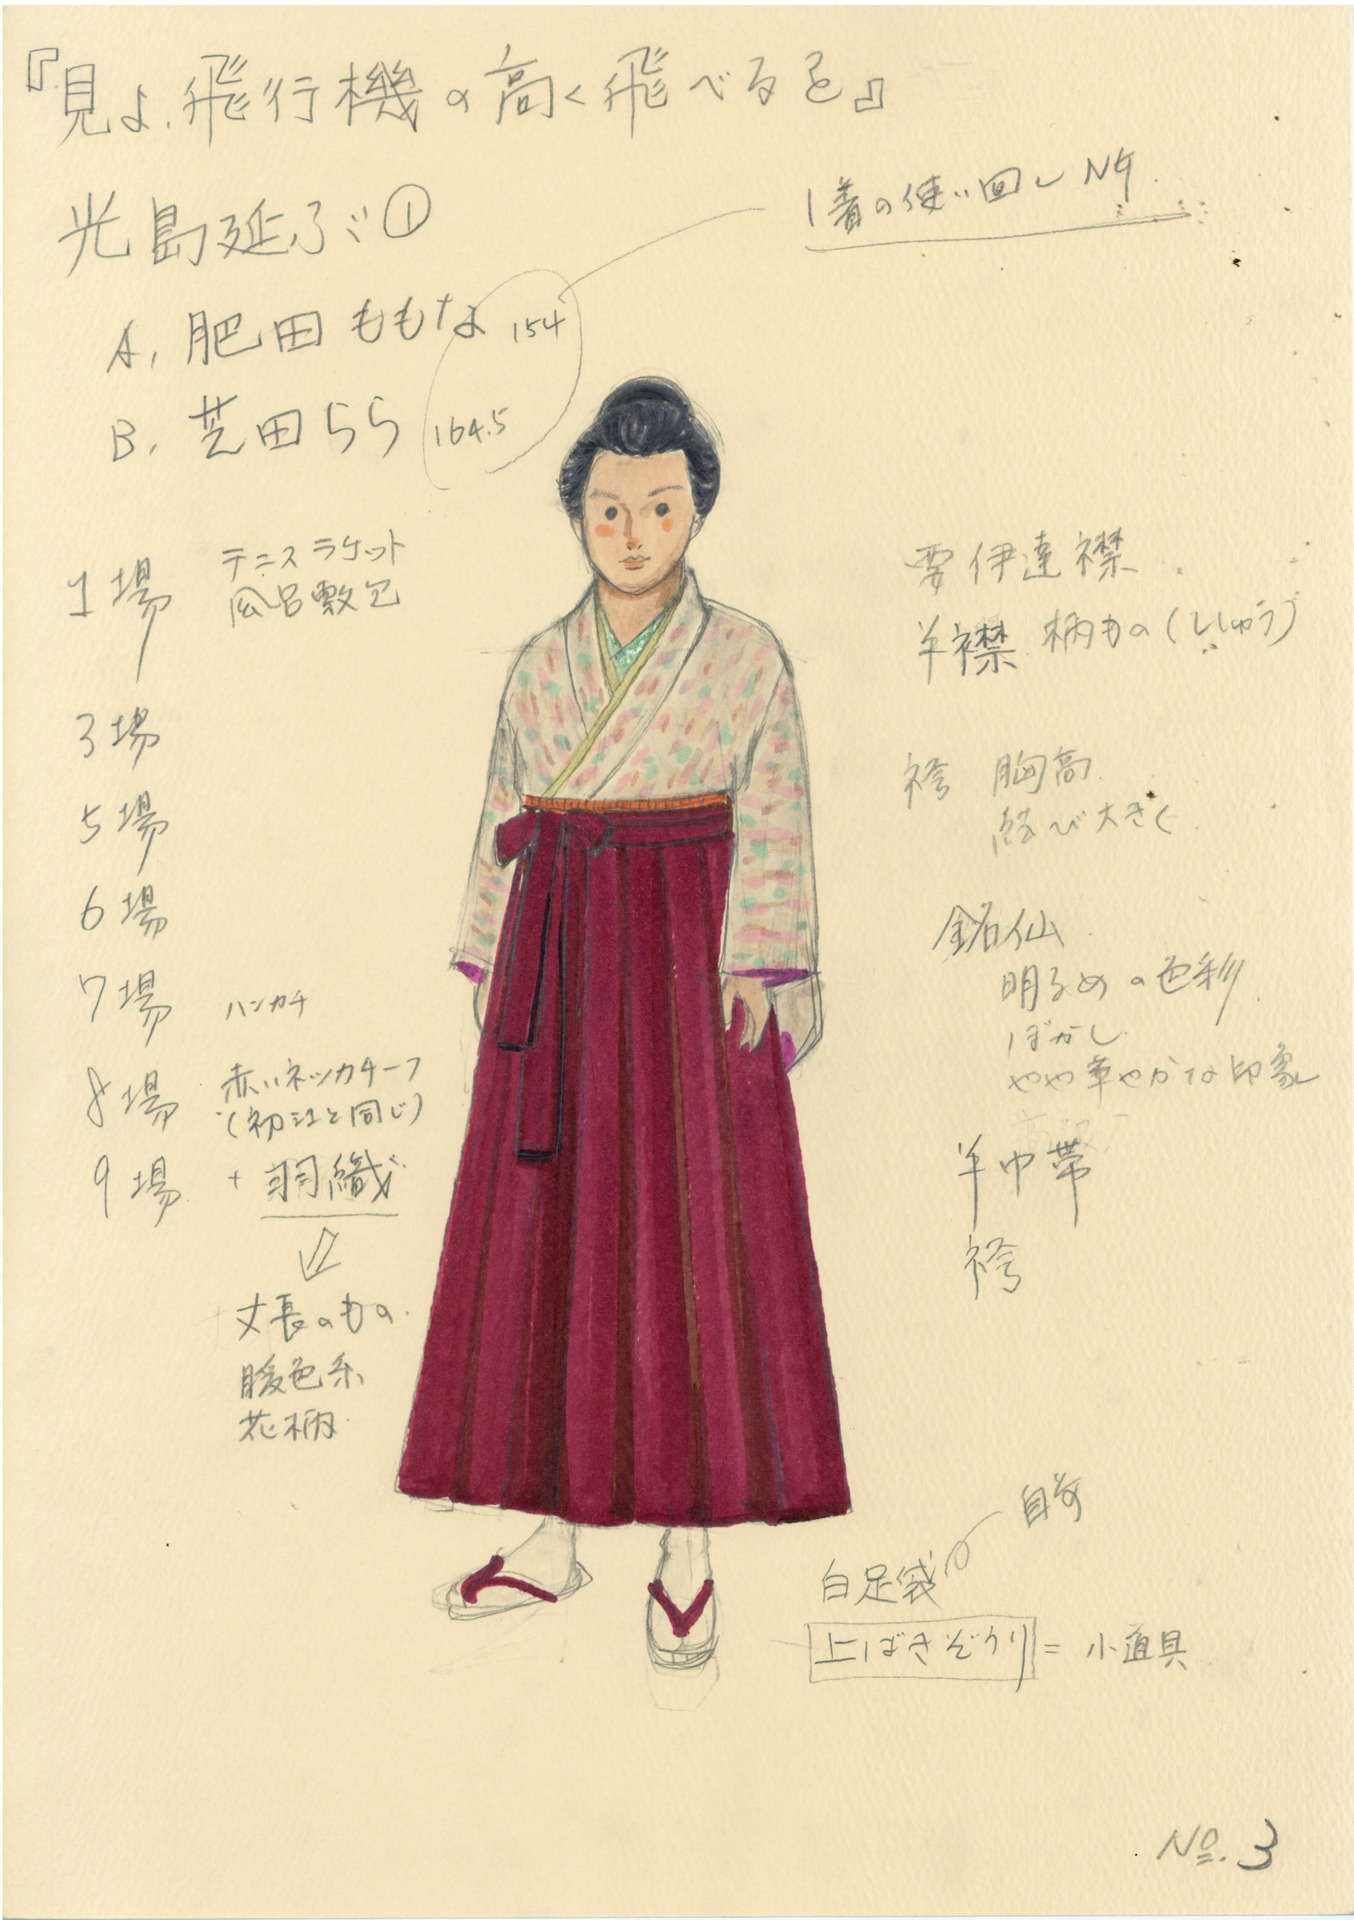 『見よ、飛行機の高く飛べるを』
光島延ぶ①
1着の使い回しNG
A. 肥田ももな 154
B. 芝田らら 164.5
1場 テニスラケット
風呂敷包
3場
5場
6場
7場 ハンカチ
8場 赤いネッカチーフ
(初江と同じ)
9場 + 羽織
丈長のもの
暖色系
花柄
要伊達襟
半襟 柄もの(ししゅう)
袴 胸高
結び大きく
銘仙
明るめの色彩
ぼかし
やや華やかな印象
半巾帯
袴
自前
白足袋
上ばきぞうり = 小道具
No. 3